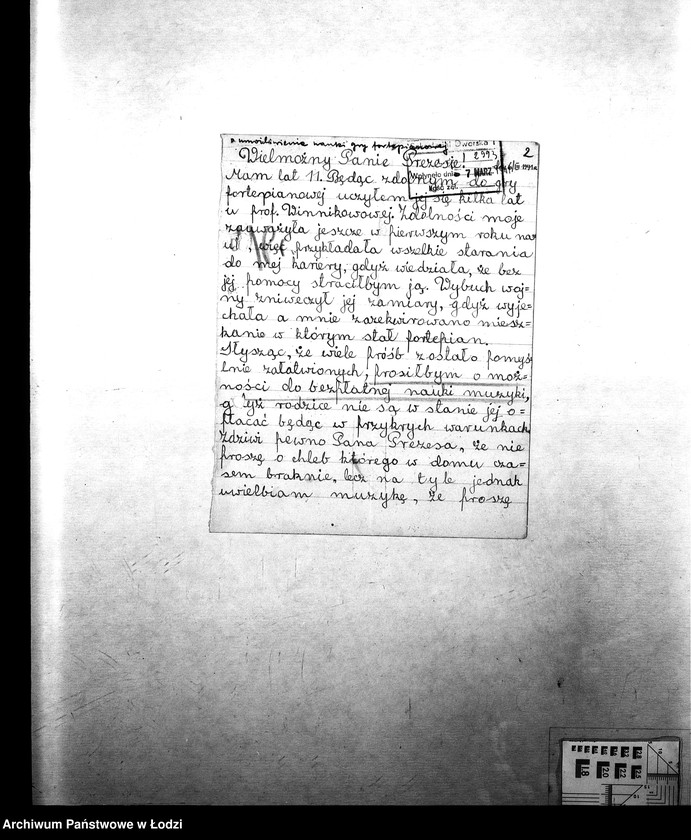 o umożliwienie nauki gry fortepianowej
Dworska 1
2993
2
Wielmożny Panie Prezesie!
Wpłynęło dnia 7 MARZ. 1941 r.
Mam lat 11. Będąc zdolnym do gry
fortepianowej uczyłem jej się kilka lat
u prof. Winnikowowej. Zdolności moje
zauważyła jeszcze w pierwszym roku na
uk, więc przykładała wszelkie starania
do mej kariery, gdyż wiedziała, że bez
jej pomocy straciłbym ją. Wybuch woj=
ny zniweczył jej zamiary, gdyż wyje=
chała a mnie zarekwirowano miesz=
kanie w którym stał fortepian.
Słysząc, że wiele próśb zostało pomyś
lnie załatwionych, prosiłbym o moż=
ności do bezpłatnej nauki muzyki,
gdyż rodzice nie są w stanie jej o=
płacać będąc w przykrych warunkach
Zdziwi pewno Pana Prezesa, że nie
proszę o chleb którego w domu cza=
sem braknie, lecz na tyle jednak
uwielbiam muzykę, że proszę
18 20 22 25
Archiwum Państwowe w Łodzi